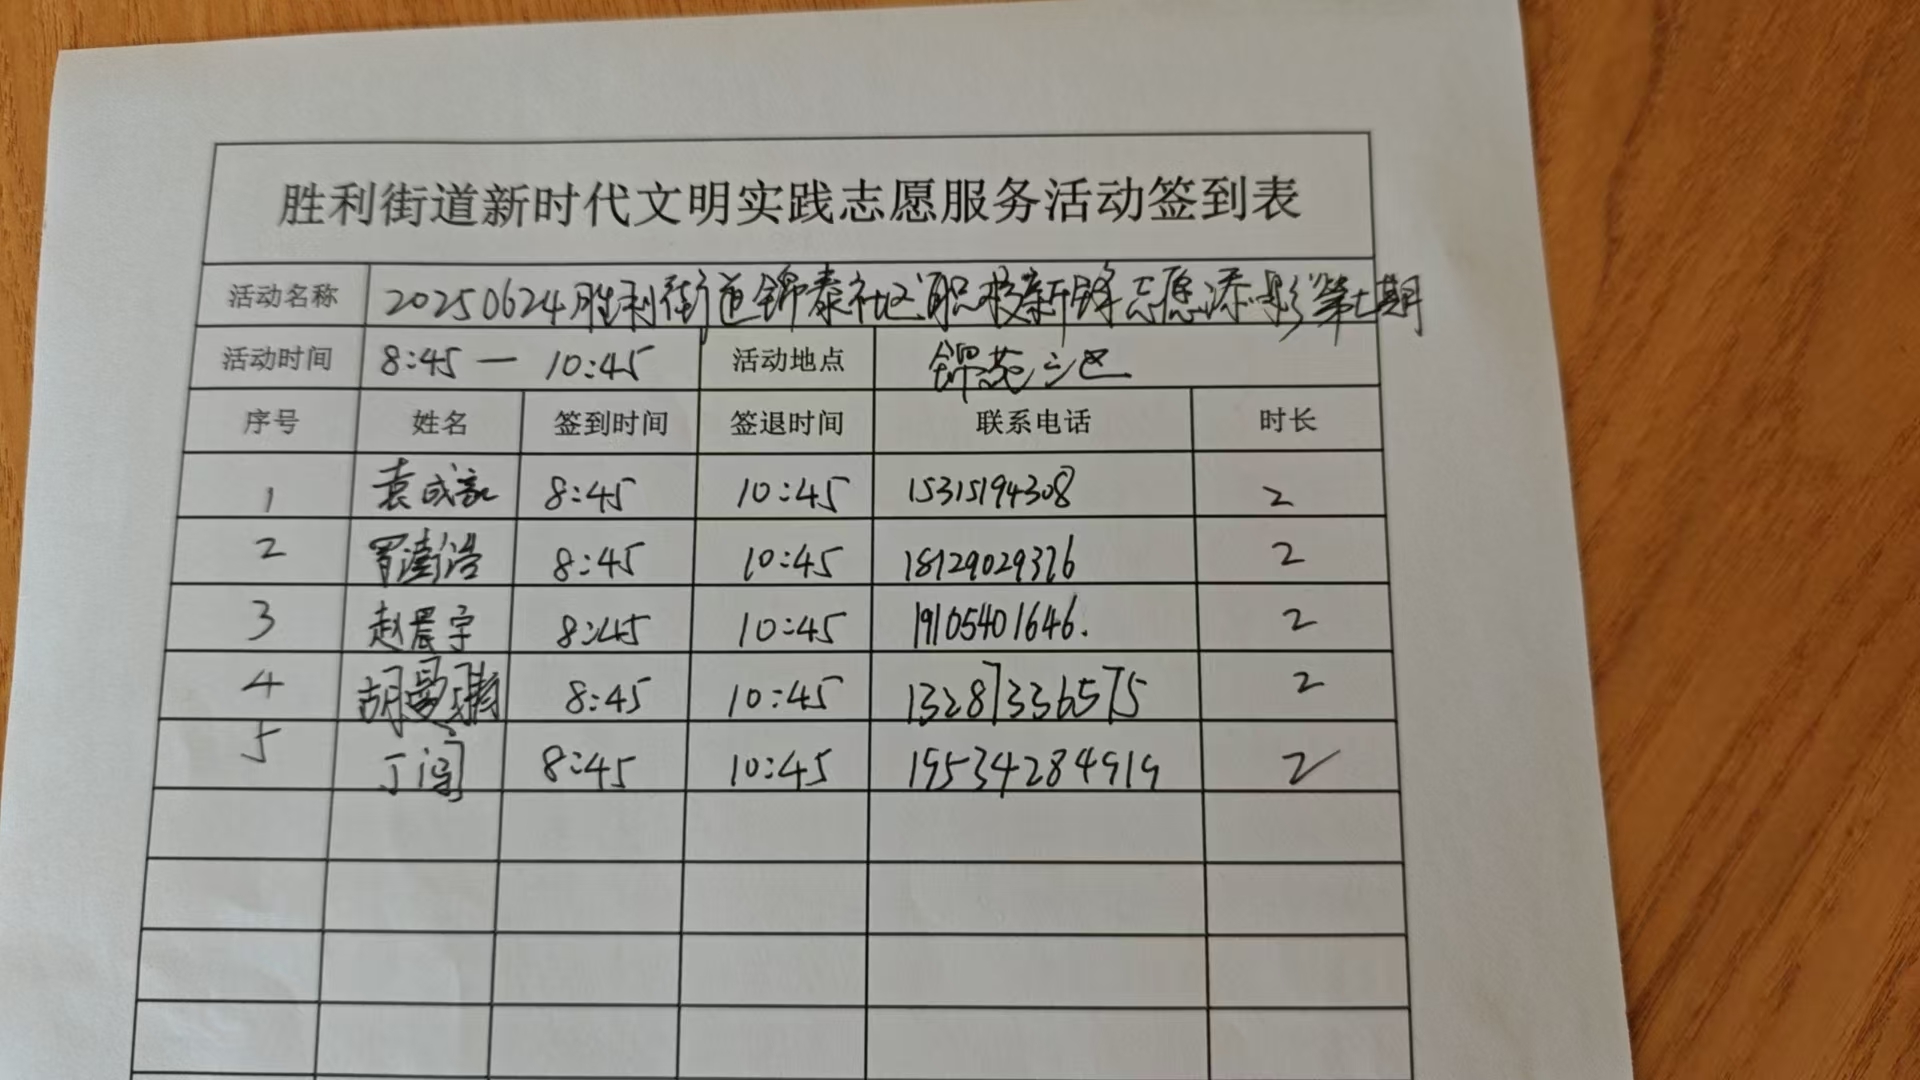 胜利街道新时代文明实践志愿服务活动签到表
活动名称 20250624胜利街道锦泰社区"职校新锋志愿添彩"第七期
活动时间 8:45 — 10:45 活动地点 锦苑三区
序号 姓名 签到时间 签退时间 联系电话 时长
1 袁成豪 8:45 10:45 15315194308 2
2 罗澎浩 8:45 10:45 18129029376 2
3 赵晨宇 8:45 10:45 19105401646. 2
4 胡曼 8:45 10:45 13287336575 2
5 丁闯 8:45 10:45 19534284919 2